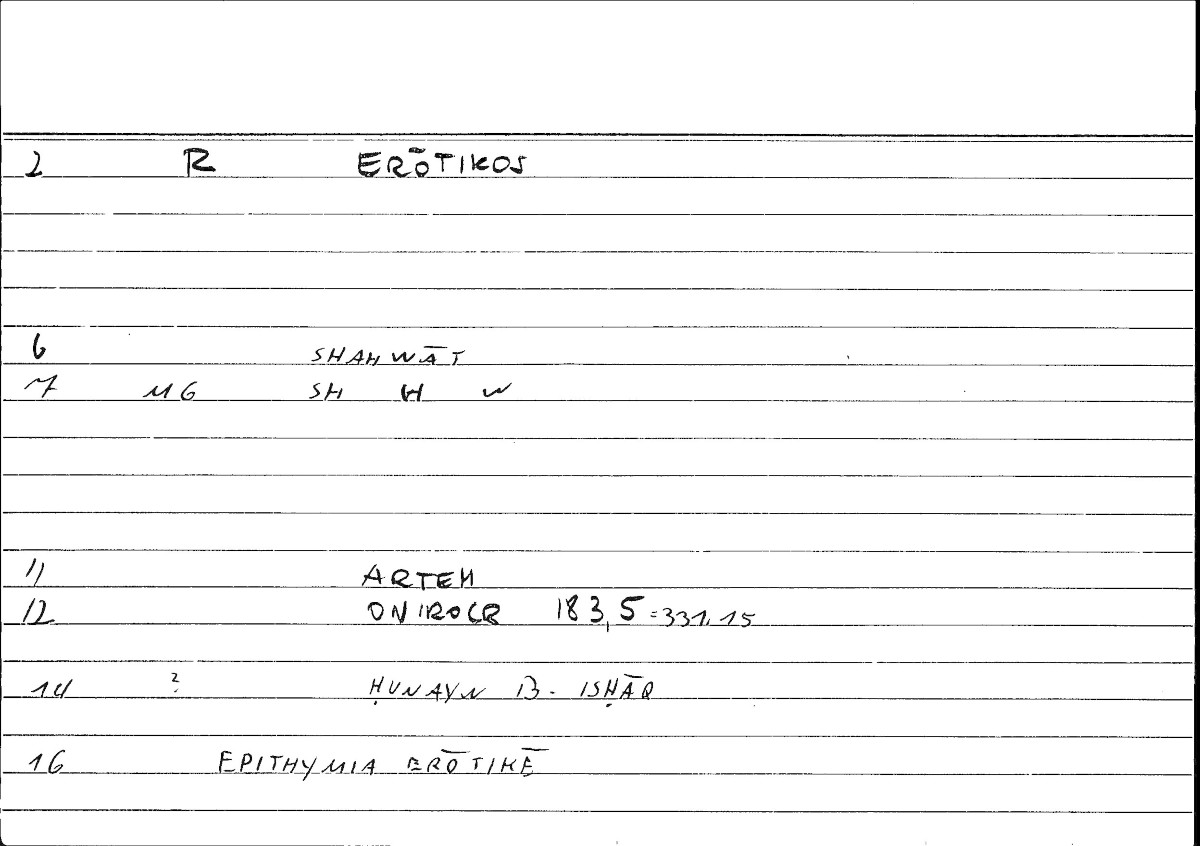 2 R ERŌTIKOS
6 SHAHWĀT
7 MG SH H W
11 ARTEM
12 ONIROCR 183,5=331,15
14 ? ḤUNAYN B. ISḤĀQ
16 EPITHYMIA ERŌTIKĒ